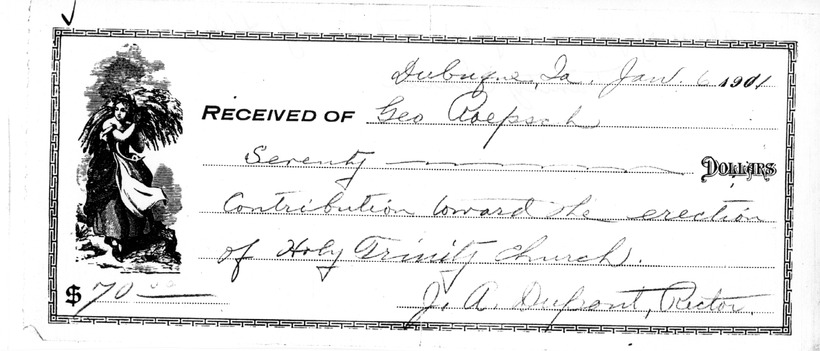 Dubuque, Ia. Jan. 6 1901
RECEIVED OF Geo Roepsch
Seventy DOLLARS
Contribution toward the erection
of Holy Trinity Church.
$ 70 00
J. A. Dupont, Rector.